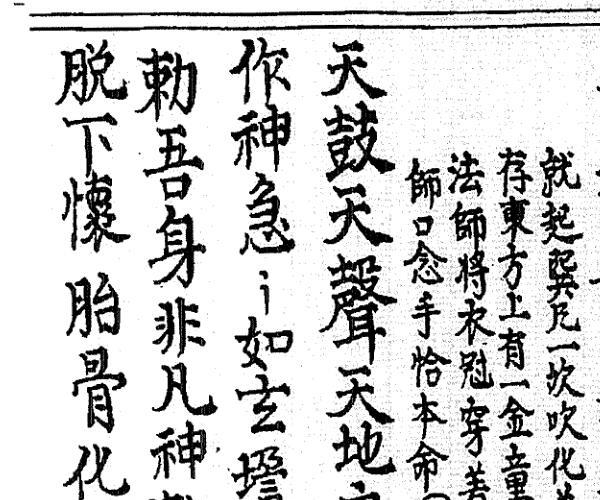 就起巽炁一吹吹化
存東方上有一金童
法師將衣冠穿着
師口念手恰本命
天鼓天聲天地
作神急〻如玄壇
勅吾身非凡神
脱下懷胎骨化